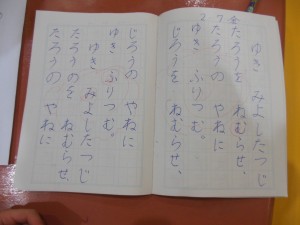 ゆき　みよしたつじ
たろうを　ねむらせ、
たろうの　やねに
ゆき　ふりつむ。
じろうを　ねむらせ、
じろうの　やねに
ゆき　ふりつむ。
ゆき　みよしたつじ
たろうのを　ねむらせ、
たろうの　やねに